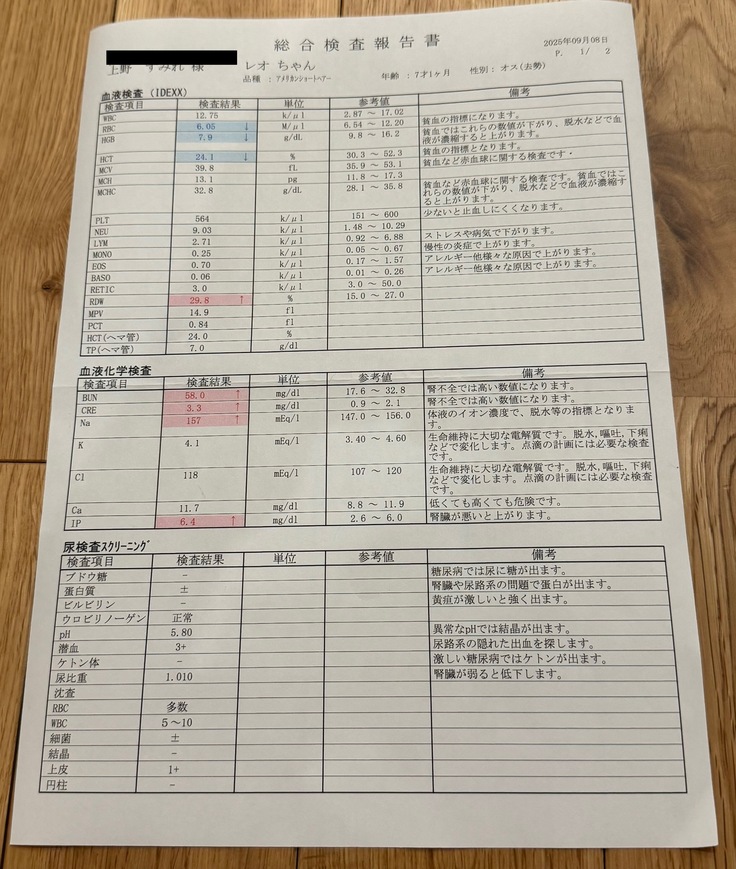 総合検査報告書
2025年09月08日
P. 1/ 2
上野 すみれ 様 レオ ちゃん
品種 : アメリカンショートヘアー 年齢 : 7才1ヶ月 性別 : オス(去勢)
血液検査 (IDEXX)
検査項目 検査結果 単位 参考値 備考
WBC 12.75 k/μl 2.87 ～ 17.02
RBC 6.05 ↓ M/μl 6.54 ～ 12.20 貧血の指標になります。
HGB 7.9 ↓ g/dL 9.8 ～ 16.2 貧血ではこれらの数値が下がり、脱水などで血
液が濃縮すると上がります。
HCT 24.1 ↓ % 30.3 ～ 52.3 貧血の指標となります。
MCV 39.8 fL 35.9 ～ 53.1 貧血など赤血球に関する検査です・
MCH 13.1 pg 11.8 ～ 17.3
MCHC 32.8 g/dL 28.1 ～ 35.8 貧血など赤血球に関する検査です。貧血ではこ
れらの数値が下がり、脱水などで血液が濃縮す
ると上がります。
PLT 564 k/μl 151 ～ 600 少ないと止血しにくくなります。
NEU 9.03 k/μl 1.48 ～ 10.29
LYM 2.71 k/μl 0.92 ～ 6.88 ストレスや病気で下がります。
MONO 0.25 k/μl 0.05 ～ 0.67 慢性の炎症で上がります。
EOS 0.70 k/μl 0.17 ～ 1.57 アレルギー他様々な原因で上がります。
BASO 0.06 k/μl 0.01 ～ 0.26 アレルギー他様々な原因で上がります。
RETIC 3.0 k/μl 3.0 ～ 50.0
RDW 29.8 ↑ % 15.0 ～ 27.0
MPV 14.9 fl
PCT 0.84 fl
HCT(ヘマ管) 24.0 %
TP(ヘマ管) 7.0 g/dl
血液化学検査
検査項目 検査結果 単位 参考値 備考
BUN 58.0 ↑ mg/dl 17.6 ～ 32.8 腎不全では高い数値になります。
CRE 3.3 ↑ mg/dl 0.9 ～ 2.1 腎不全では高い数値になります。
Na 157 ↑ mEq/l 147.0 ～ 156.0 体液のイオン濃度で、脱水等の指標となりま
す。
K 4.1 mEq/l 3.40 ～ 4.60 生命維持に大切な電解質です。脱水,嘔吐,下痢
などで変化します。点滴の計画には必要な検査
です。
Cl 118 mEq/l 107 ～ 120 生命維持に大切な電解質です。脱水,嘔吐,下痢
などで変化します。点滴の計画には必要な検査
です。
Ca 11.7 mg/dl 8.8 ～ 11.9 低くても高くても危険です。
IP 6.4 ↑ mg/dl 2.6 ～ 6.0 腎臓が悪いと上がります。
尿検査スクリーニング
検査項目 検査結果 単位 参考値 備考
ブドウ糖 － 糖尿病では尿に糖が出ます。
蛋白質 ± 腎臓や尿路系の問題で蛋白が出ます。
ビルビリン － 黄疸が激しいと強く出ます。
ウロビリノーゲン 正常
pH 5.80 異常なpHでは結晶が出ます。
潜血 3+ 尿路系の隠れた出血を探します。
ケトン体 － 激しい糖尿病ではケトンが出ます。
尿比重 1.010 腎臓が弱ると低下します。
沈査
RBC 多数
WBC 5～10
細菌 ±
結晶 －
上皮 1+
円柱 －